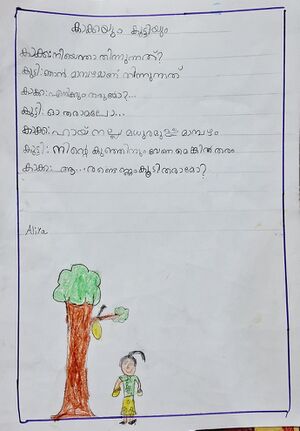 കാക്കയും കുട്ടിയും
കാക്ക: നീയെന്താ തിന്നുന്നത്?
കുട്ടി: ഞാൻ മാമ്പഴമാണ് തിന്നുന്നത്
കാക്ക: എനിക്കും തരുമോ?...
കുട്ടി: ഓ തരാമല്ലോ...
കാക്ക: ഹായ് നല്ല മധുരമുള്ള മാമ്പഴം
കുട്ടി: നിന്റെ കുഞ്ഞിനും വേണമെങ്കിൽ തരാം
കാക്ക: ആ... രണ്ടെണ്ണം കൂടി തരാമോ?
Aliya